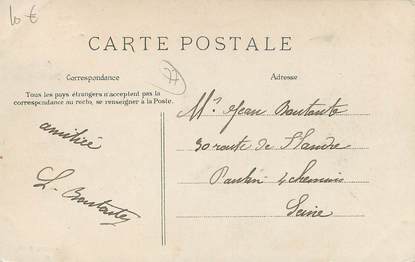 10 €
CARTE POSTALE
Correspondance
Tous les pays étrangers n'acceptent pas la
correspondance au recto, se renseigner à la Poste.
Adresse
amitié
L. Boutante
Mr Jean Boutante
30 route de Flandre
Pantin 4 chemins
Seine